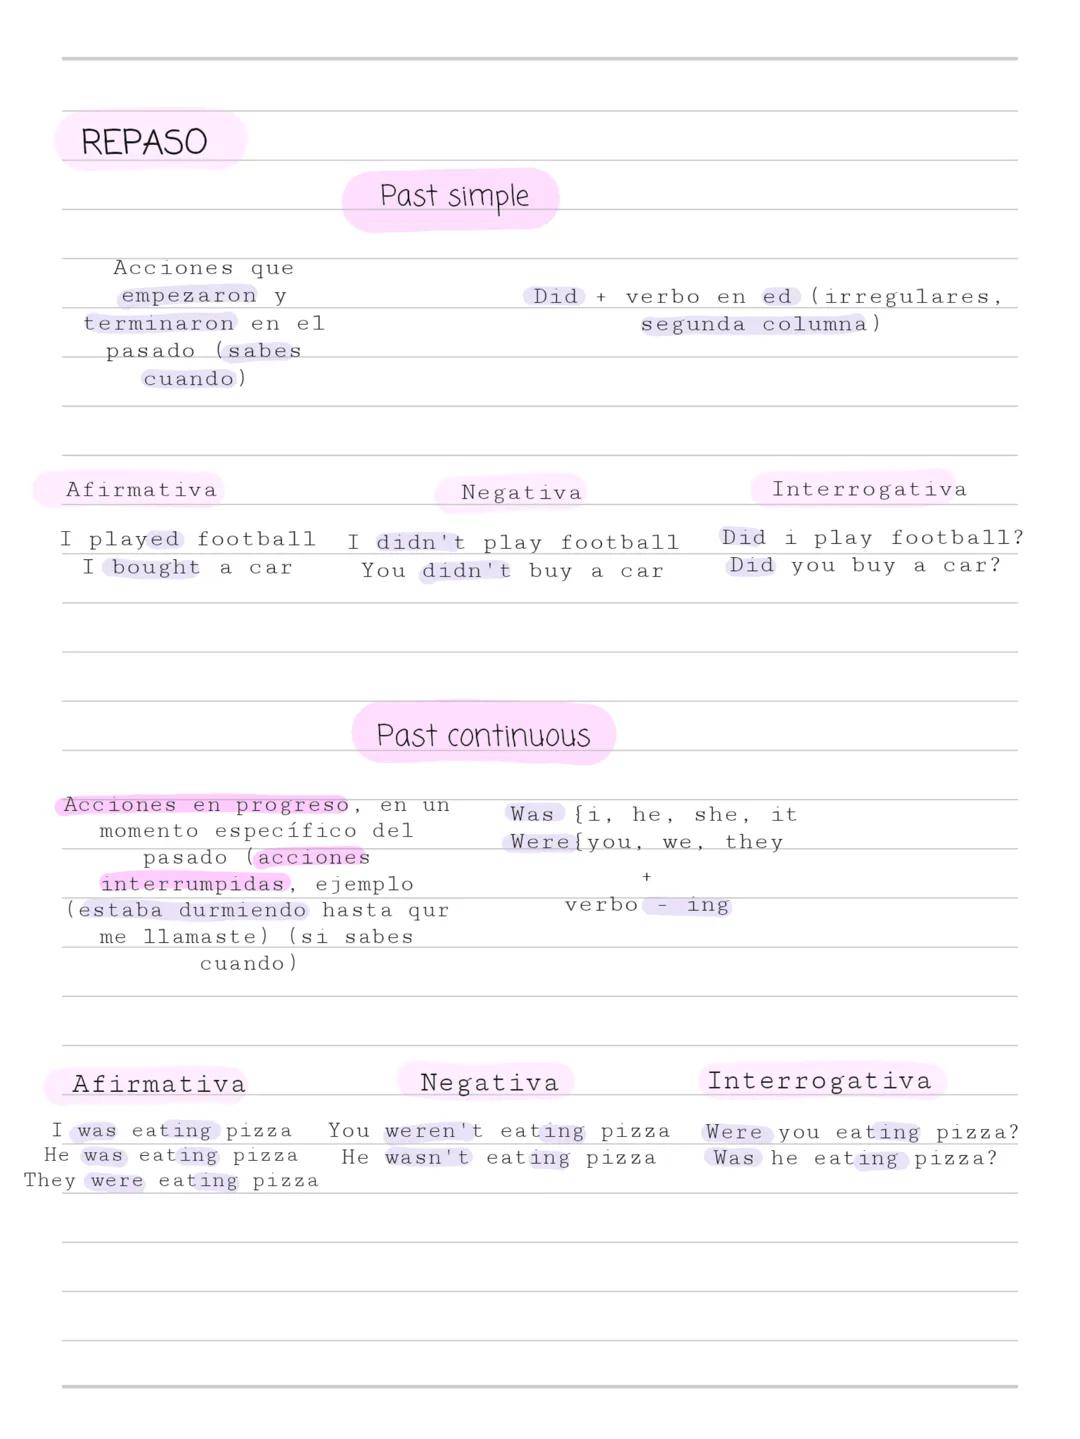 REPASO
Past simple
Acciones que
empezaron y
terminaron en el
pasado (sabes
cuando)
Did + verbo en ed (irregulares,
segunda columna)
Afirmativa
I played football
I bought a car
Negativa
I didn't play football
You didn't buy a car
Interrogativa
Did i play football?
Did you buy a car?
Past continuous
Acciones en progreso, en un
momento específico del
pasado (acciones
interrumpidas, ejemplo
(estaba durmiendo hasta qur
me llamaste) (si sabes
cuando)
Was {i, he, she, it
Were{you, we, they
+
verbo - ing
Afirmativa
I was eating pizza
He was eating pizza
They were eating pizza
Negativa
You weren't eating pizza
He wasn't eating pizza
Interrogativa
Were you eating pizza?
Was he eating pizza?